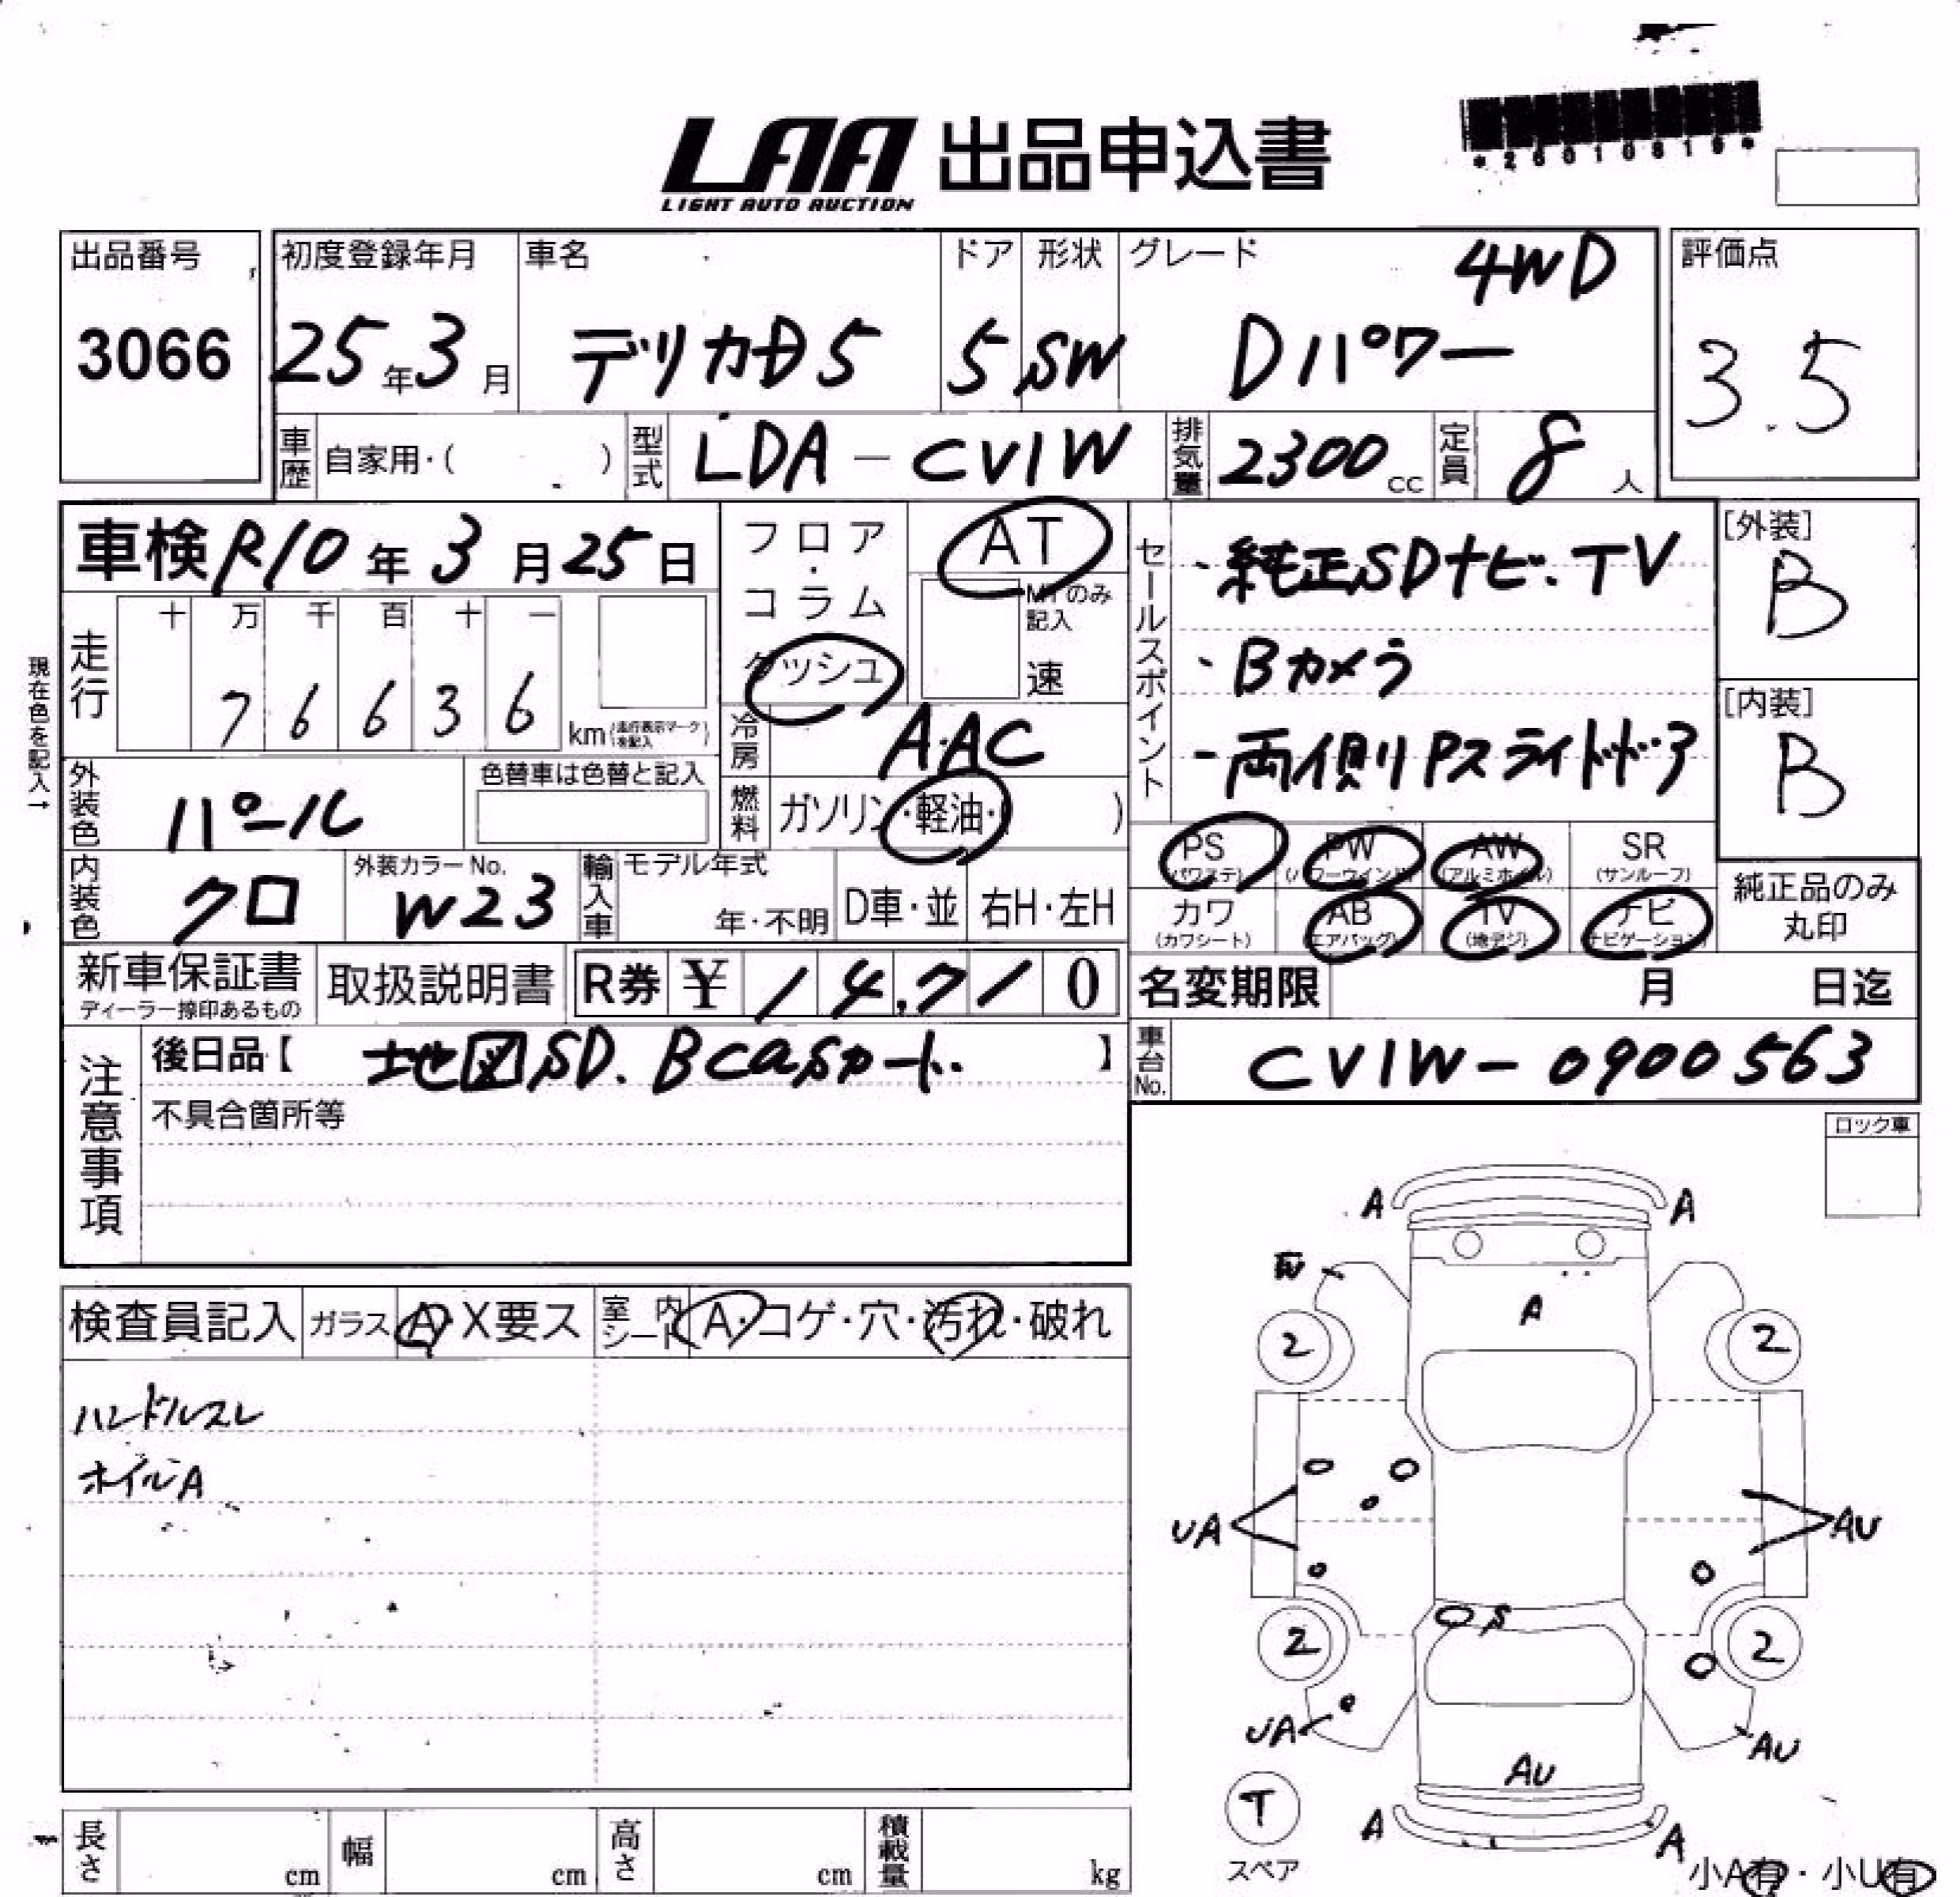 LAA 出品申込書
LIGHT AUTO AUCTION
*26010819*
出品番号
3066
初度登録年月
25年3月
車名
デリカD5
ドア
5
形状
SW
グレード
4WD
Dパワー
評価点
3.5
車歴 自家用・( )
型式 LDA-CV1W
排気量 2300cc
定員 8人
車検 R10年3月25日
フロア・コラム
ダッシュ
AT
MTのみ記入
速
セールスポイント
・純正SDナビ・TV
・Bカメラ
・両側Pスライドドア
[外装]
B
[内装]
B
現在色を記入→
走行
十 万 千 百 十 一
7 6 6 3 6 km(走行表示マークを記入)
冷房 AAC
燃料 ガソリン・軽油・( )
外装色 パール
色替車は色替と記入
内装色 クロ
外装カラーNo.
W23
輸入車
モデル年式
年・不明
D車・並
右H・左H
PS (パワステ)
PW (パワーウインド)
AW (アルミホイル)
SR (サンルーフ)
カワ (カワシート)
AB (エアバッグ)
TV (地デジ)
ナビ (ナビゲーション)
純正品のみ丸印
新車保証書
ディーラー捺印あるもの
取扱説明書
R券 ¥ 14,710
名変期限 月 日迄
注意事項
後日品【 地図SD. Bcasカード. 】
不具合箇所等
車台No. CV1W-0900563
ロック車
検査員記入
ガラス A・X要ス
室内シート A・コゲ・穴・汚れ・破れ
ハンドルスレ
ホイルA
A A
W
A
2 2
UA AU
S
2 2
UA AU
AU
T
スペア
A A
小A有・小U有
長さ cm
幅 cm
高さ cm
積載量 kg